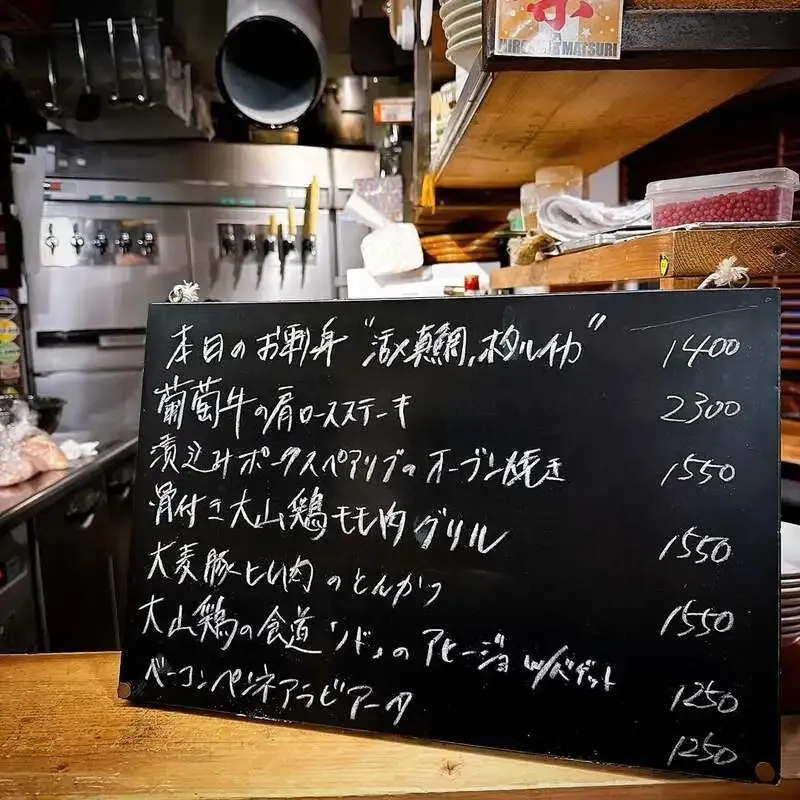 祭
HIROSHIMATSURI
本日のお刺身 "活〆真鯛,ホタルイカ" 1400
葡萄牛の肩ロースステーキ 2300
漬込みポークスペアリブのオーブン焼き 1550
骨付き大山鶏モモ肉グリル 1550
大麦豚ヒレ肉のとんかつ 1550
大山鶏の食道「ソド」のアヒージョ w/バゲット 1250
ベーコンペンネアラビアータ 1250